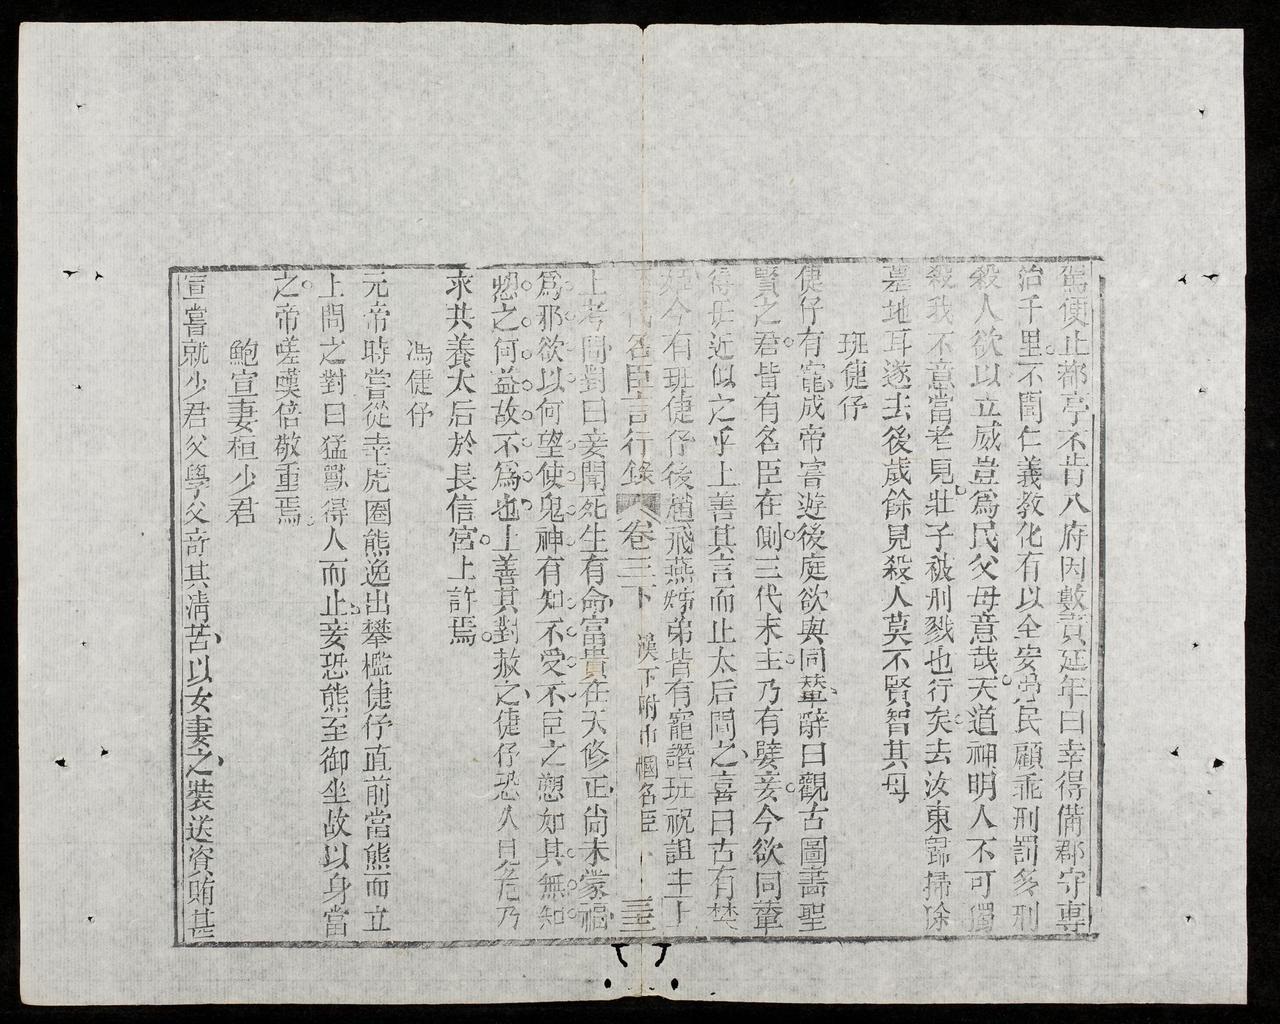 駕便止郡亭不肯入府因數責延年曰幸得備郡守專
治千里不聞仁義教化有以全安愚民顧乖刑罰多刑
殺人欲以立威豈爲民父母意哉天道神明人不可獨
殺我不意當老見壯子被刑戮也行矣去汝東歸掃除
墓地耳遂去後歲餘見殺人莫不賢智其母
班倢伃
倢伃有寵成帝嘗遊後庭欲與同輦辭曰觀古圖畫聖
賢之君皆有名臣在側三代末主乃有嬖妾今欲同輦
得毋近似之乎上善其言而止太后聞之喜曰古有樊
姬今有班倢伃後趙飛燕姊弟皆有寵譖班祝詛主上
名臣言行錄 卷三下 漢下附巾幗名臣 三三
上考問對曰妾聞死生有命富貴在天修正尚未蒙福
爲邪欲以何望使鬼神有知不受不臣之愬如其無知
愬之何益故不爲也上善其對赦之倢伃恐久見危乃
求共養太后於長信宮上許焉
馮倢伃
元帝時嘗從幸虎圈熊逸出攀檻倢伃直前當熊而立
上問之對曰猛獸得人而止妾恐熊至御坐故以身當
之帝嗟嘆倍敬重焉
鮑宣妻桓少君
宣嘗就少君父學父奇其清苦以女妻之裝送資賄甚